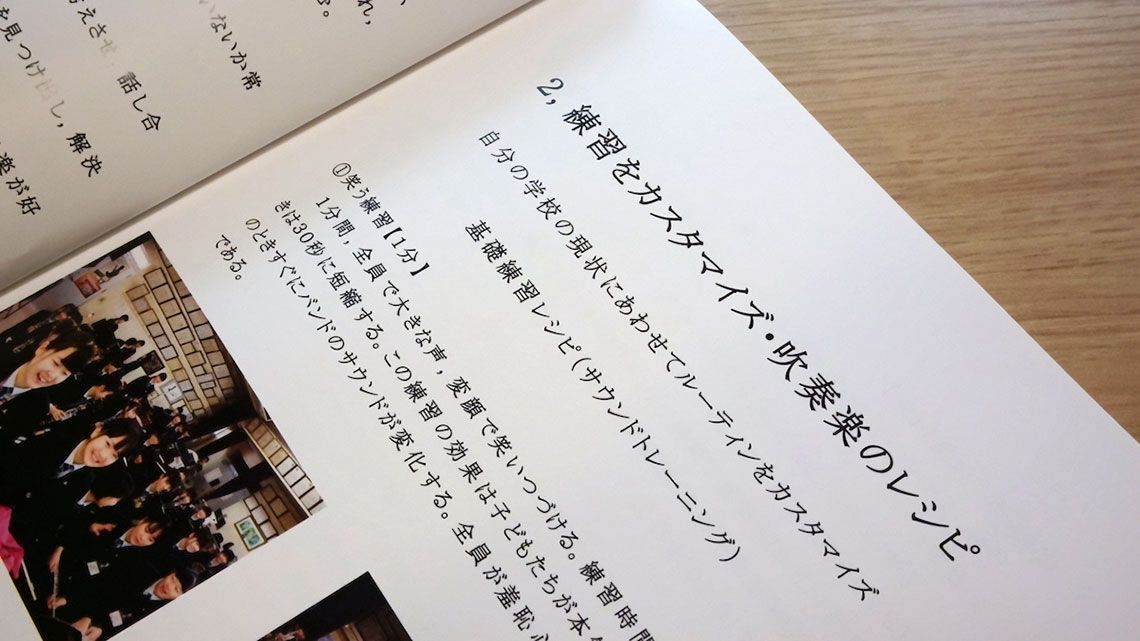 れ,
いないか常
考えさせ, 話し合
を見つけ出し, 解決
楽が好
2, 練習をカスタマイズ・吹奏楽のレシピ
自分の学校の現状にあわせてルーティンをカスタマイズ
基礎練習レシピ(サウンドトレーニング)
①笑う練習【1分】
1分間, 全員で大きな声, 変顔で笑いつづける。練習時間
きは30秒に短縮する。この練習の効果は子どもたちが本
のときすぐにバンドのサウンドが変化する。全員が羞恥心
である。